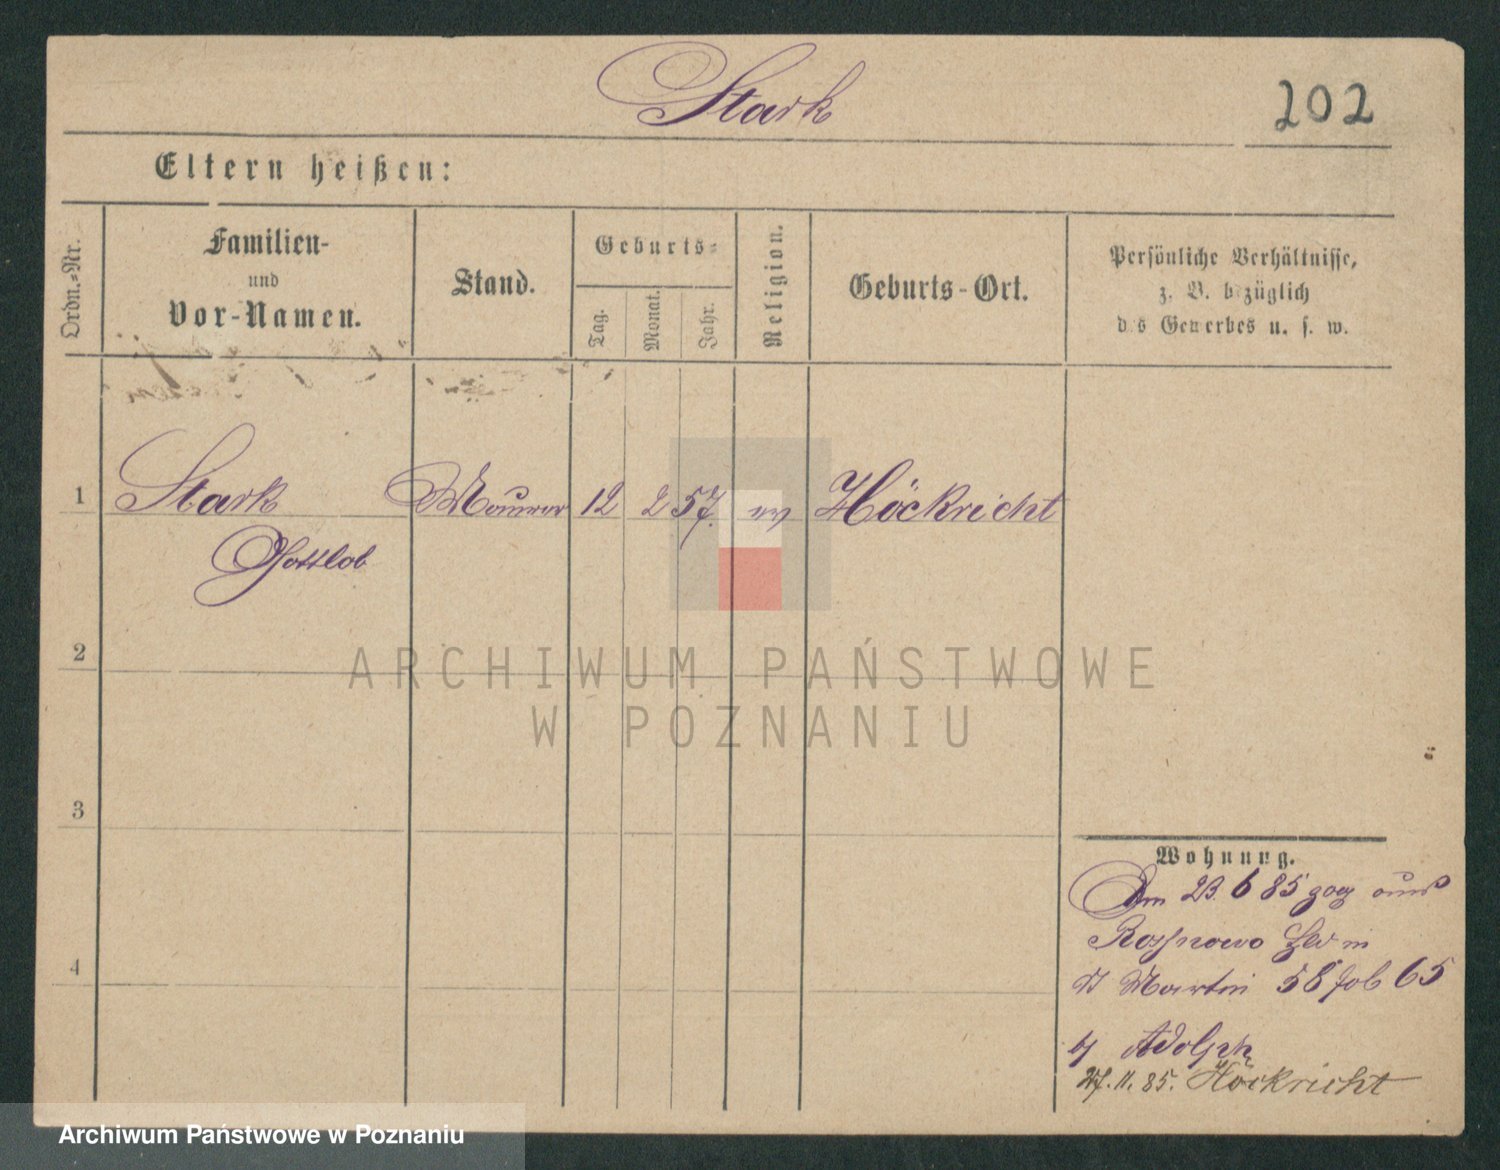 Stark
202
Eltern heißen:
Ordn.-Nr.
Familien-
und
Vor-Namen.
Stand.
Geburts-
Tag.
Monat.
Jahr.
Religion.
Geburts-Ort.
Persönliche Verhältnisse,
z. B. bezüglich
des Gewerbes u. s. w.
1 Stark Maurer 12 2 57. ev Höckricht
Gottlob
2
3
4
Wohnung.
Am 23. 6 85 zog aus
Rossnowo
St Martin 58 Job 65
bj Adolph
27. 11. 85. Höckricht
ARCHIWUM PAŃSTWOWE
W POZNANIU
Archiwum Państwowe w Poznaniu